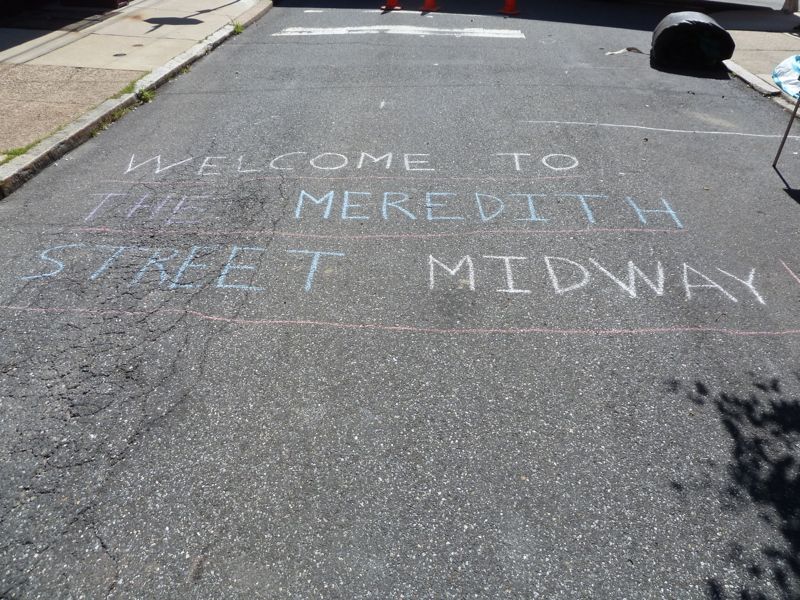 WELCOME TO
THE MEREDITH
STREET MIDWAY